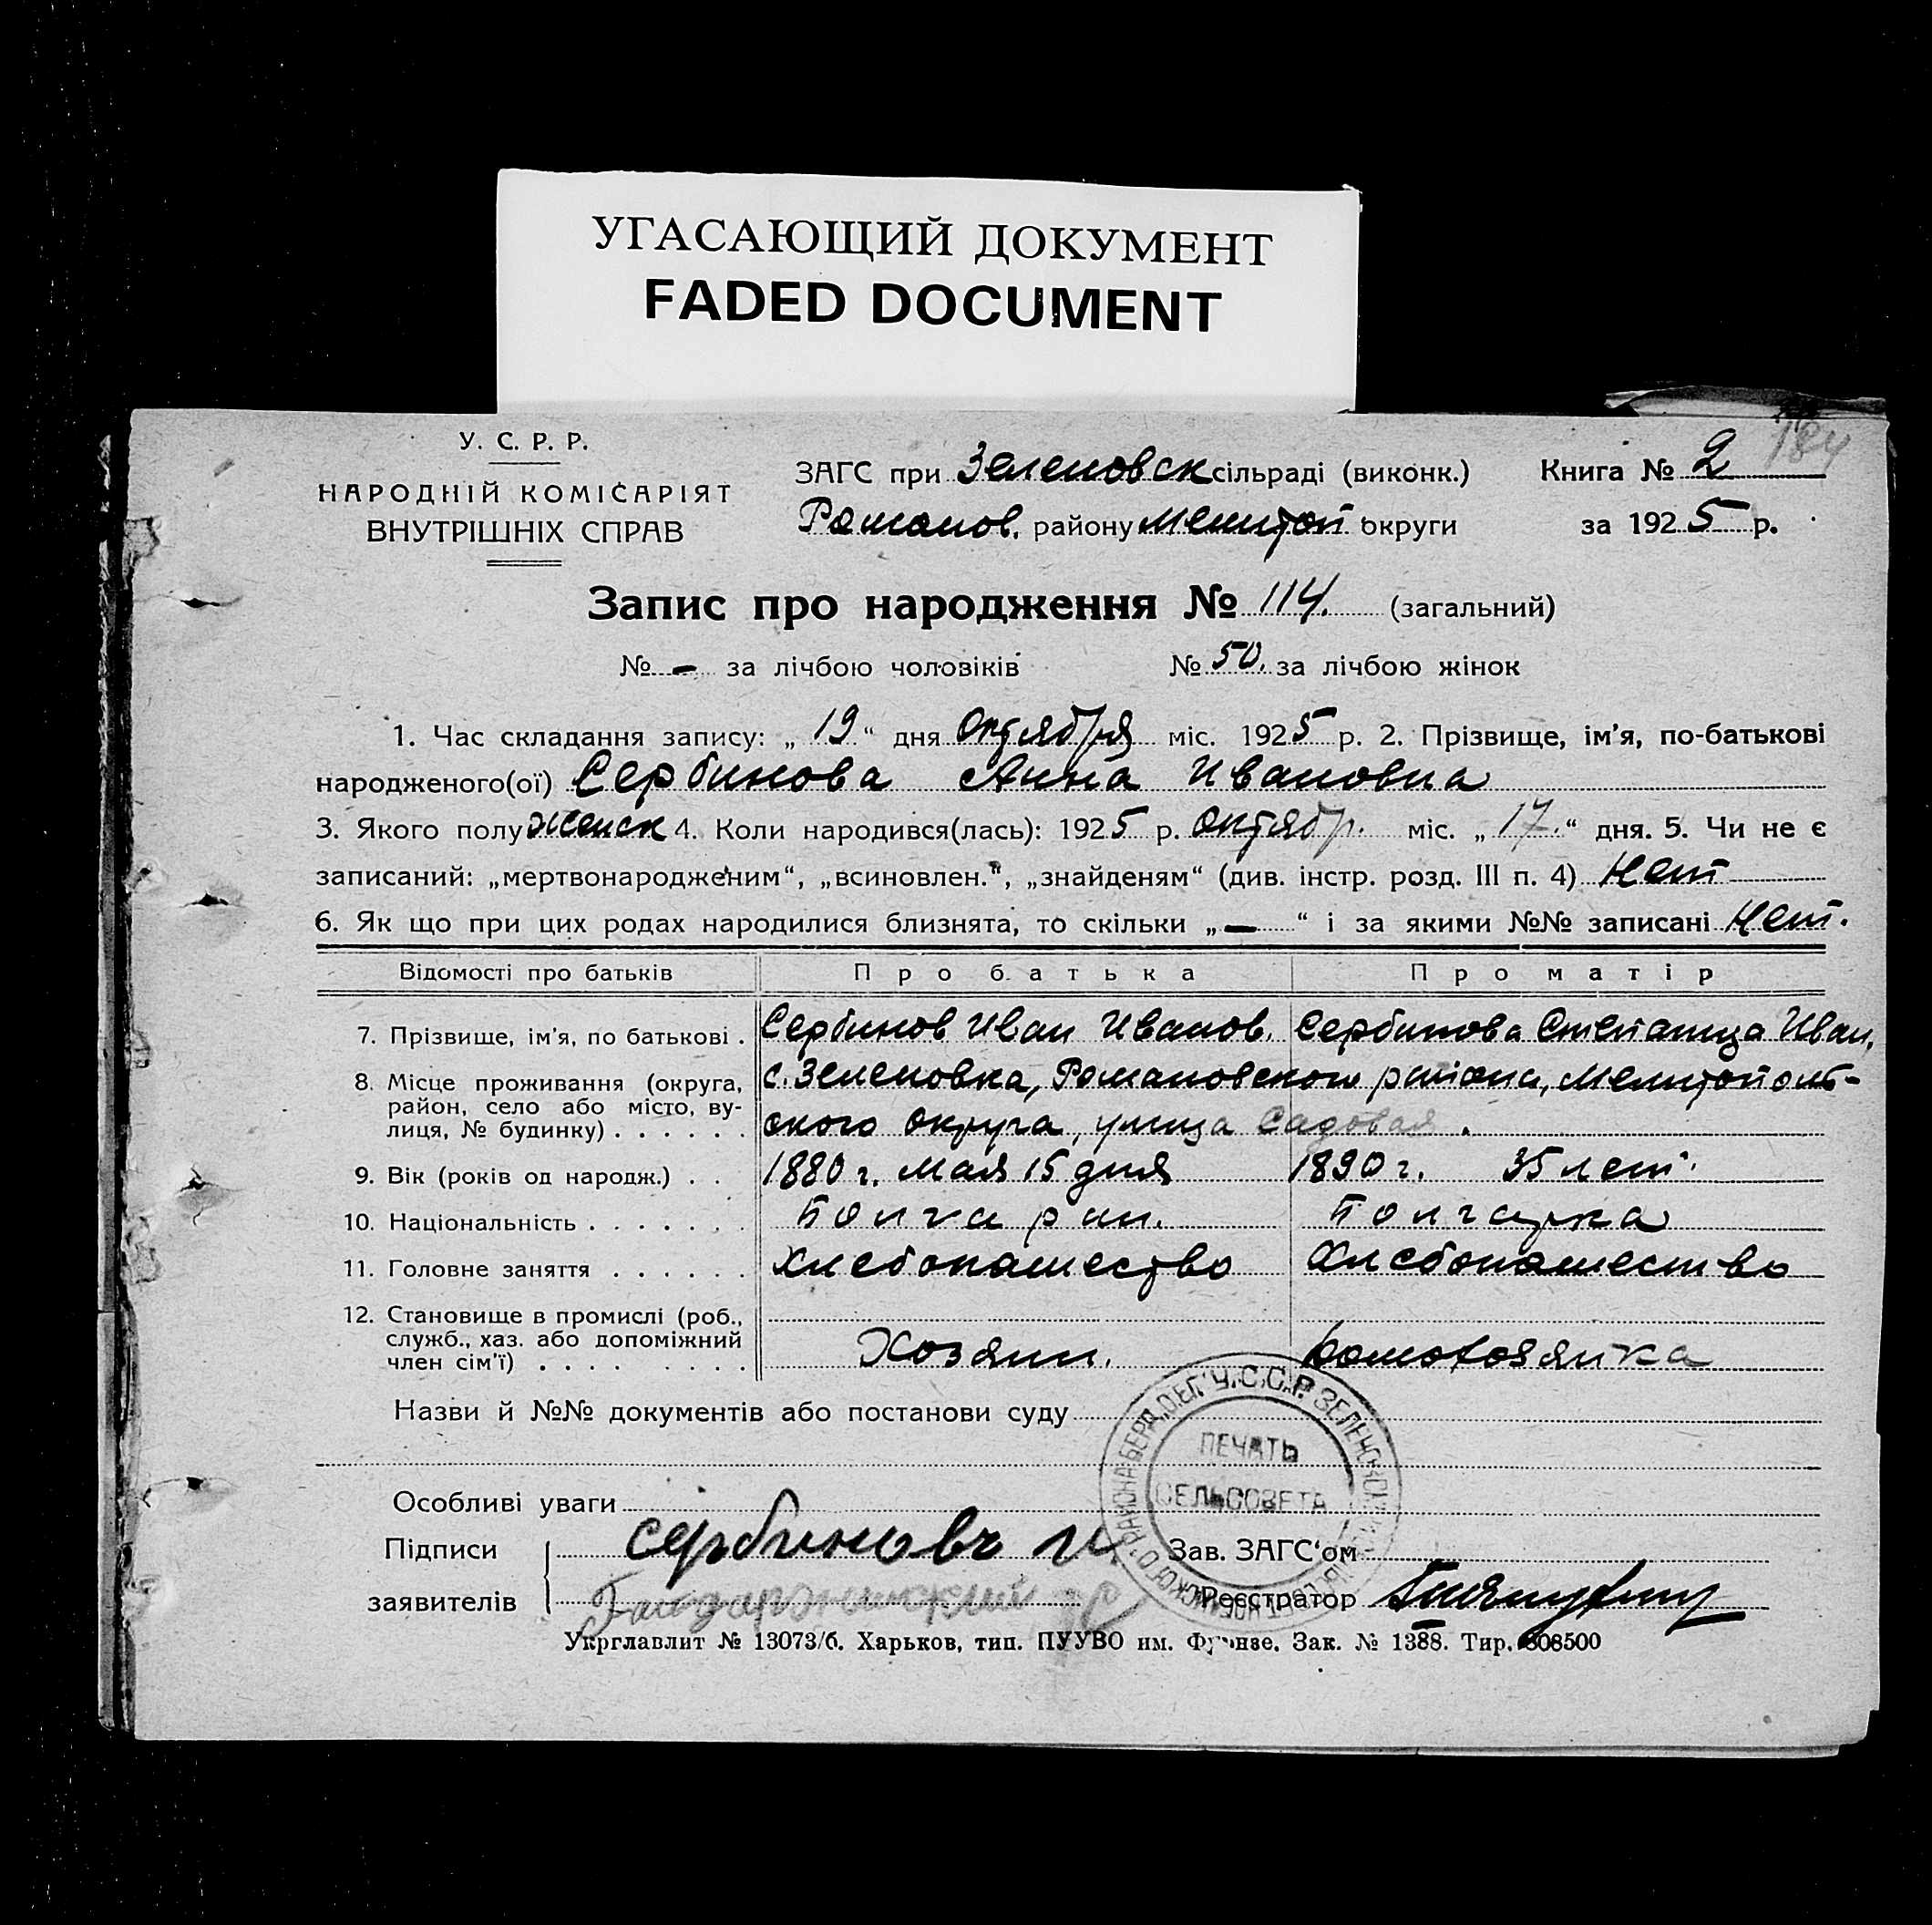 УГАСАЮЩИЙ ДОКУМЕНТ
FADED DOCUMENT
184
У. С. Р. Р.
НАРОДНІЙ КОМІСАРІЯТ
ВНУТРІШНІХ СПРАВ
ЗАГС при Зеленовск сільраді (виконк.) Книга № 2
Романов. району Мелитоп округи за 1925 р.
Запис про народження № 114. (загальний)
№ - за лічбою чоловіків № 50. за лічбою жінок
1. Час складання запису: „ 19 “ дня Октября міс. 1925 р. 2. Прізвище, ім'я, по-батькові
народженого(ої) Сербинова Анна Ивановна
3. Якого полу женск 4. Коли народився(лась): 1925 р. октябр. міс. „ 17. “ дня. 5. Чи не є
записаний: „мертвонародженим“, „всиновлен.“, „знайденям“ (див. інстр. розд. III п. 4) Нет
6. Як що при цих родах народилися близнята, то скільки „ — “ і за якими №№ записані Нет.
Відомості про батьків Про батька Про матір
7. Прізвище, ім'я, по батькові . Сербинов Иван Иванов. Сербинова Степанида Иван.
8. Місце проживання (округа, с. Зеленовка, Романовского района, Мелитополь-
район, село або місто, ву-
лиця, № будинку) . . . . . . ского округа, улица Садовая .
9. Вік (років од народж.) . . 1880 г. Мая 15 дня 1890 г. 35 лет.
10. Національність . . . . . . . Болгарин. Болгарка
11. Головне заняття . . . . . . Хлебопашество Хлебопашество
12. Становище в промислі (роб.,
служб., хаз. або допоміжний
член сім'ї) . . . . . . . . Хозяин. домохозяйка
Назви й №№ документів або постанови суду
У.С.С.Р.
ПЕЧАТЬ
СЕЛЬСОВЕТА
Особливі уваги
Підписи Сербиновъ И Зав. ЗАГС'ом
заявителів Реєстратор
Укрглавлит № 13073/б. Харьков, тип. ПУУВО им. Фрунзе. Зак. № 1388. Тир. 808500